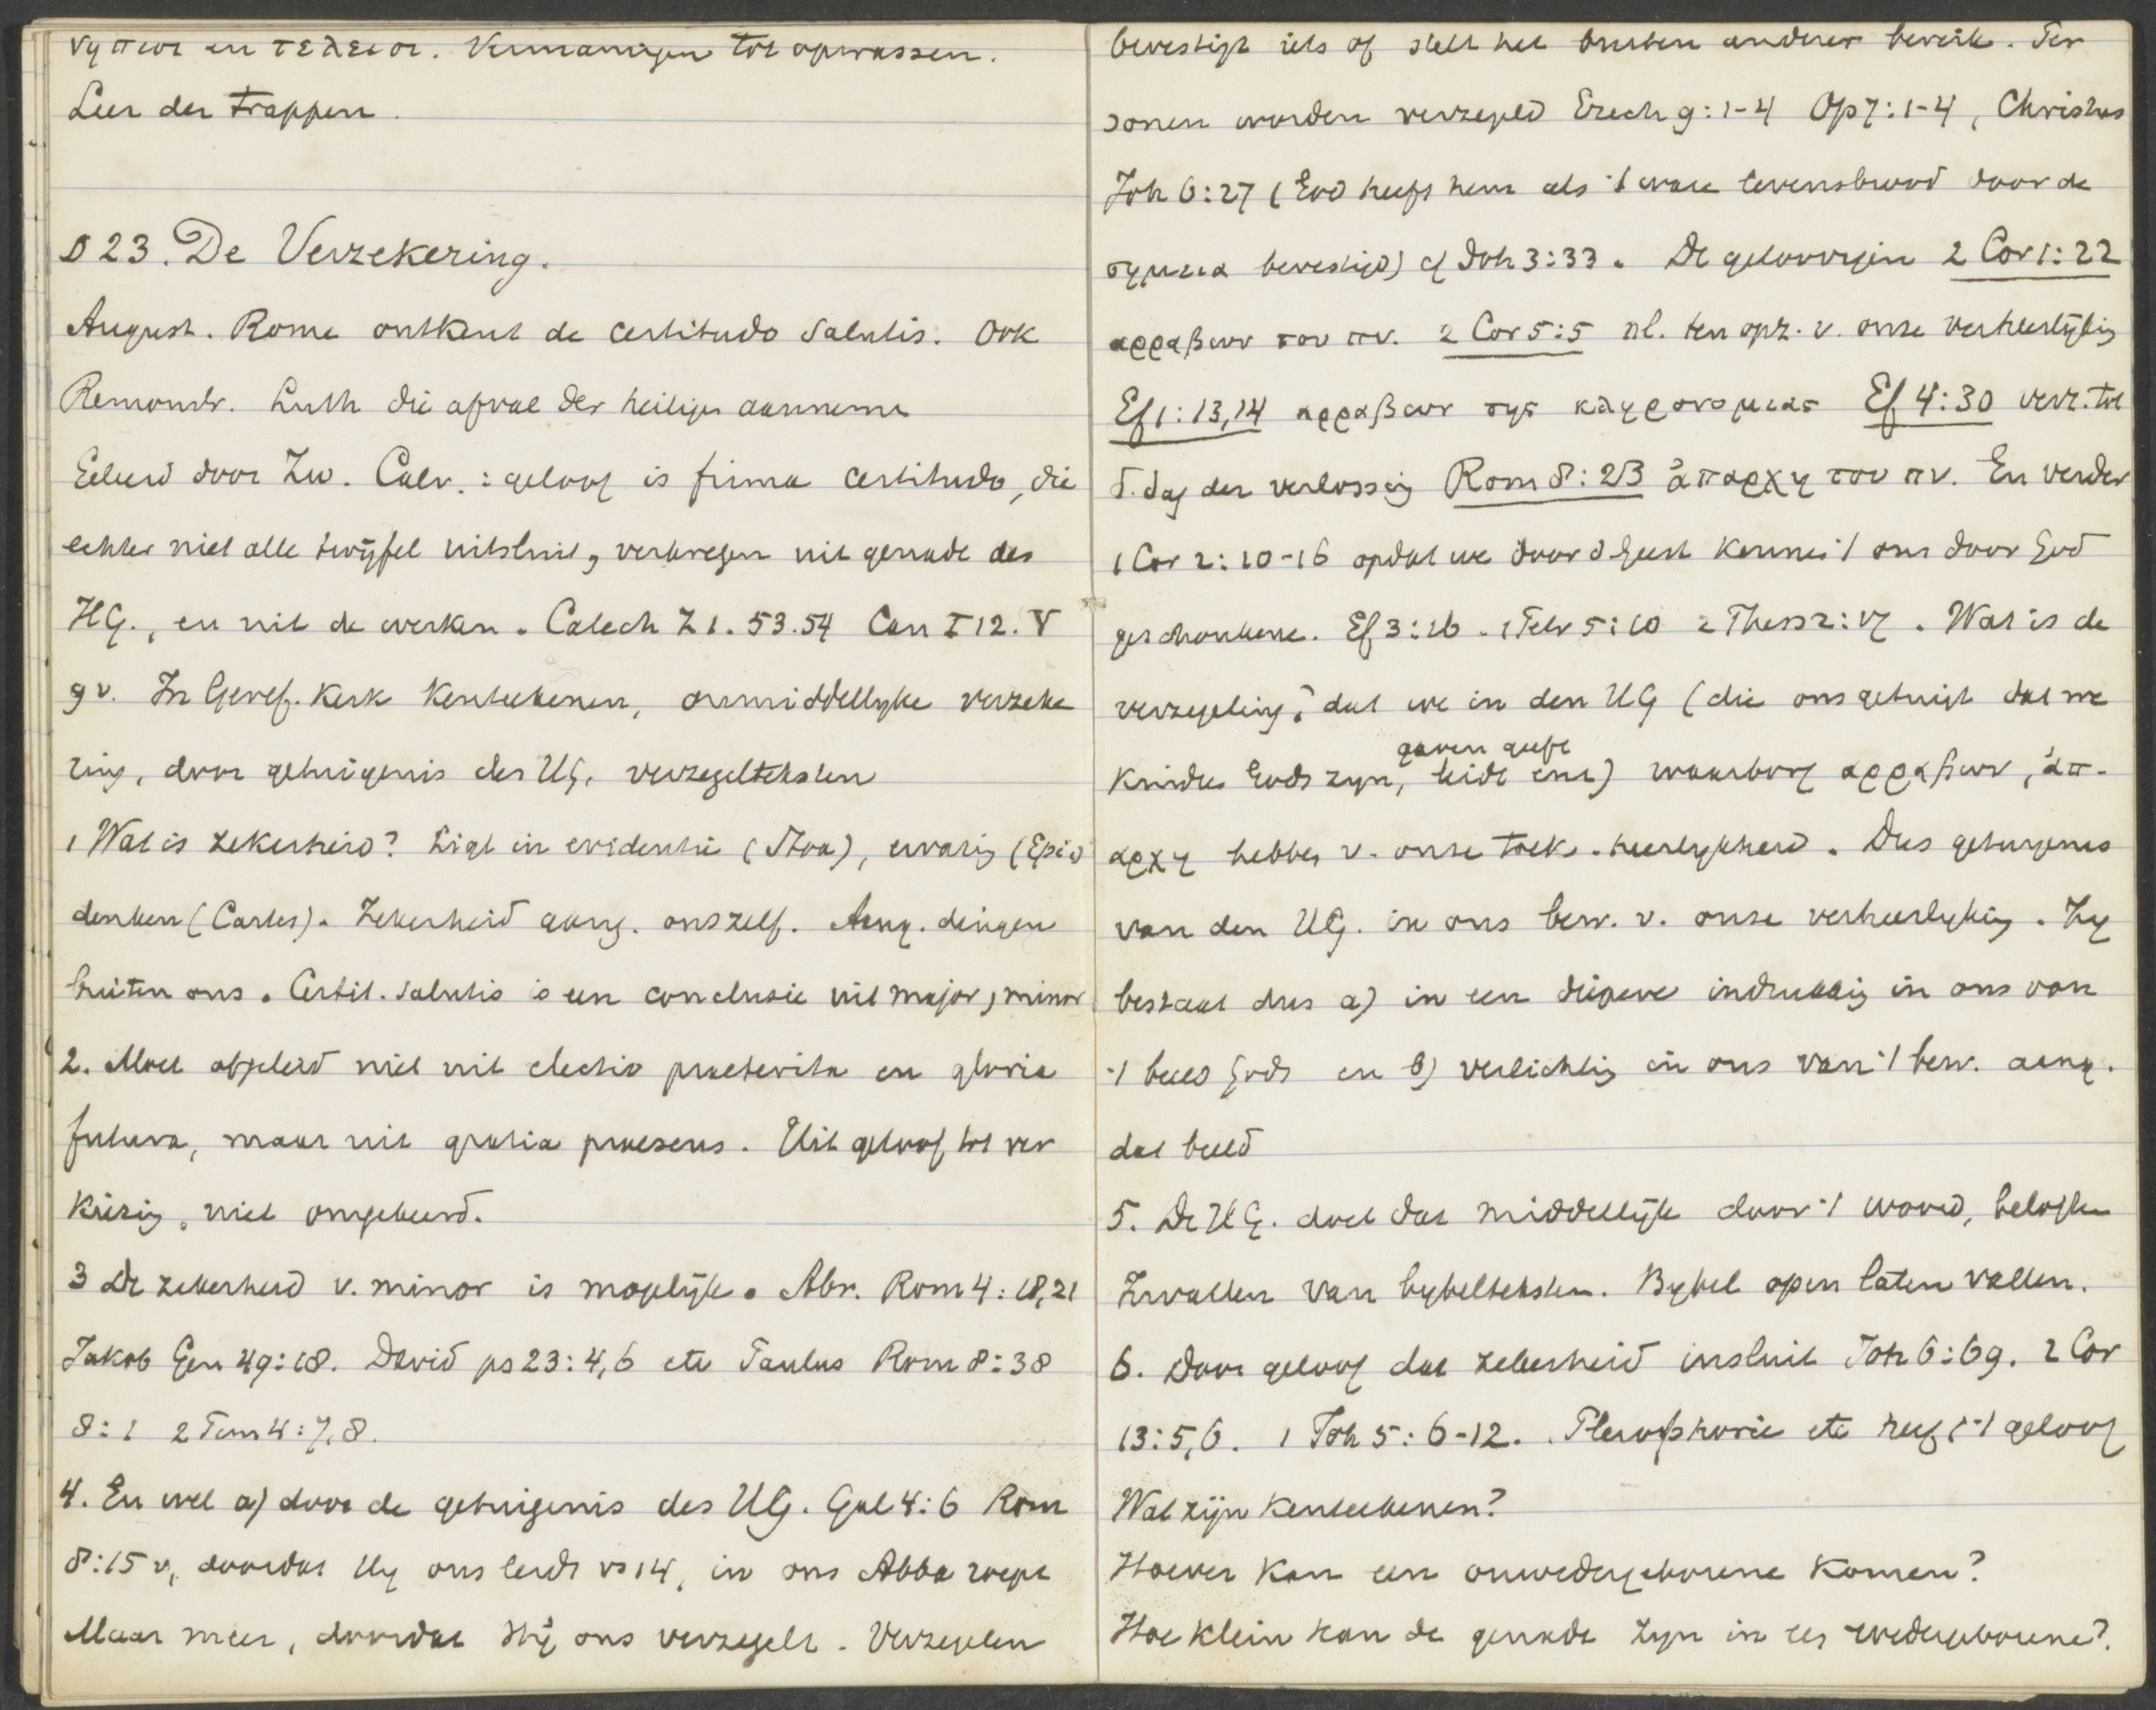 νηπιοι en τελειοι. Vermaningen tot opwassen.
Leer der trappen.
§ 23. De Verzekering.
August. Rome ontkent de certitudo salutis. Ook
Remonstr. Luth die afval der heiligen aannemen
Geleerd door Zw. Calv.: geloof is firma certitudo, die
echter niet alle twijfel uitsluit, verkregen uit genade des
HG., en uit de werken. Catech Z 1. 53. 54 Can I 12. V
9 v. In Geref. Kerk Kenteekenen, onmiddellyke verzeke
ring, door getuigenis des HG. verzegelteksten
1 Wat is zekerheid? Ligt in evidentie (Stoa), ervaring (Epic)
denken (Cartes). Zekerheid aang. onszelf. Aang. dingen
buiten ons. Certit. salutis is een conclusie uit major, minor
2. Moet afgeleid niet uit electio praeterita en gloria
futura, maar uit gratia praesens. Uit geloof tot ver
kiezing, niet omgekeerd.
3 De zekerheid v. minor is mogelijk. Abr. Rom 4: 18,21
Jakob Gen 49:18. David ps 23: 4,6 etc Paulus Rom 8:38
8: 1 2 Tim 4: 7,8.
4. En wel a) door de getuigenis des HG. Gal 4:6 Rom
8:15 v, doordat Hy ons leidt vs 14, in ons Abba roept
Maar meer, doordat Hij ons verzegelt. Verzegelen
bevestigt iets of stelt het buiten anderer bereik. Per
sonen worden verzegeld Ezech 9: 1-4 Op 7: 1-4, Christus
Joh 6:27 (God heeft hem als 't ware levensbrood door de
σημεια bevestigd) cf Joh 3:33. De geloovigen 2 Cor 1:22
αρραβων του πν. 2 Cor 5:5 nl. ten opz. v. onze verheerlijking
Ef 1:13,14 αρραβων της κληρονομιας Ef 4:30 verz. tot
d. dag der verlossing Rom 8:23 ἀπαρχη του πν. En verder
1 Cor 2: 10-16 opdat we door d Geest kennen 't ons door God
geschonkene. Ef 3:16. 1 Petr 5:10 2 Thess 2:17. Wat is de
verzegeling? dat we in den HG (die ons getuigt dat we
kinders Gods zyn, gaven geeft leidt enz) waarborg αρραβων, ἀπ-
αρχη hebben v. onze toek. heerlykheid. Dus getuigenis
van den HG. in ons bew. v. onze verheerlyking. Zy
bestaat dus a) in een diepere indrukking in ons van
't beeld Gods en b) verlichting in ons van 't bew. aang.
dat beeld
5. De HG. doet dat middellijk door 't woord, beloften
Invallen van bybelteksten. Bybel open laten vallen.
6. Door geloof dat zekerheid insluit Joh 6:69. 2 Cor
13:5,6. 1 Joh 5: 6-12. Plerophorie etc heeft 't geloof
Wat zijn Kenteekenen?
Hoever kan een onwedergeborene komen?
Hoe klein kan de genade zyn in een wedergeborene?